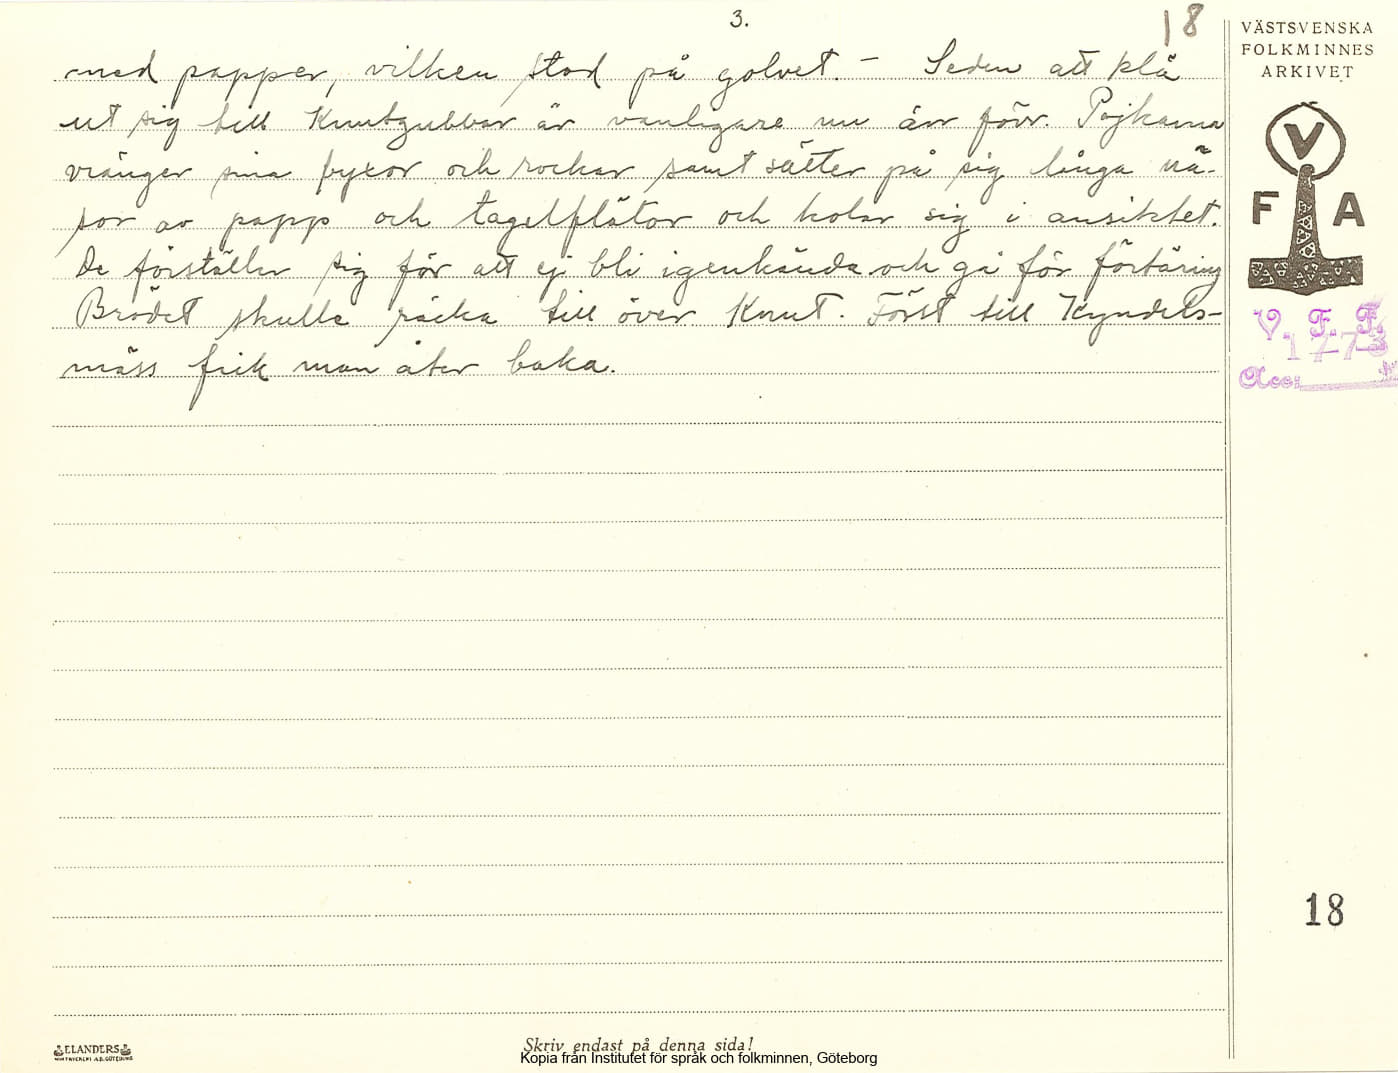 3.
18
med papper, vilken stod på golvet. – Seden att klä
ut sig till Knutgubbar är vanligare nu än förr. Pojkarna
vränger sina byxor och rockar samt sätter på sig långa nä-
sor av papp och tagelflätor och kolar sig i ansiktet.
De förställer sig för att ej bli igenkända och gå för förtäring
Brödet skulle räcka till över Knut. Först till Kyndels-
mäss fick man åter baka.
VÄSTSVENSKA
FOLKMINNES
ARKIVET
V
F A
V. F. F.
1773
Acc:
18
ELANDERS
Skriv endast på denna sida!
Kopia från Institutet för språk och folkminnen, Göteborg